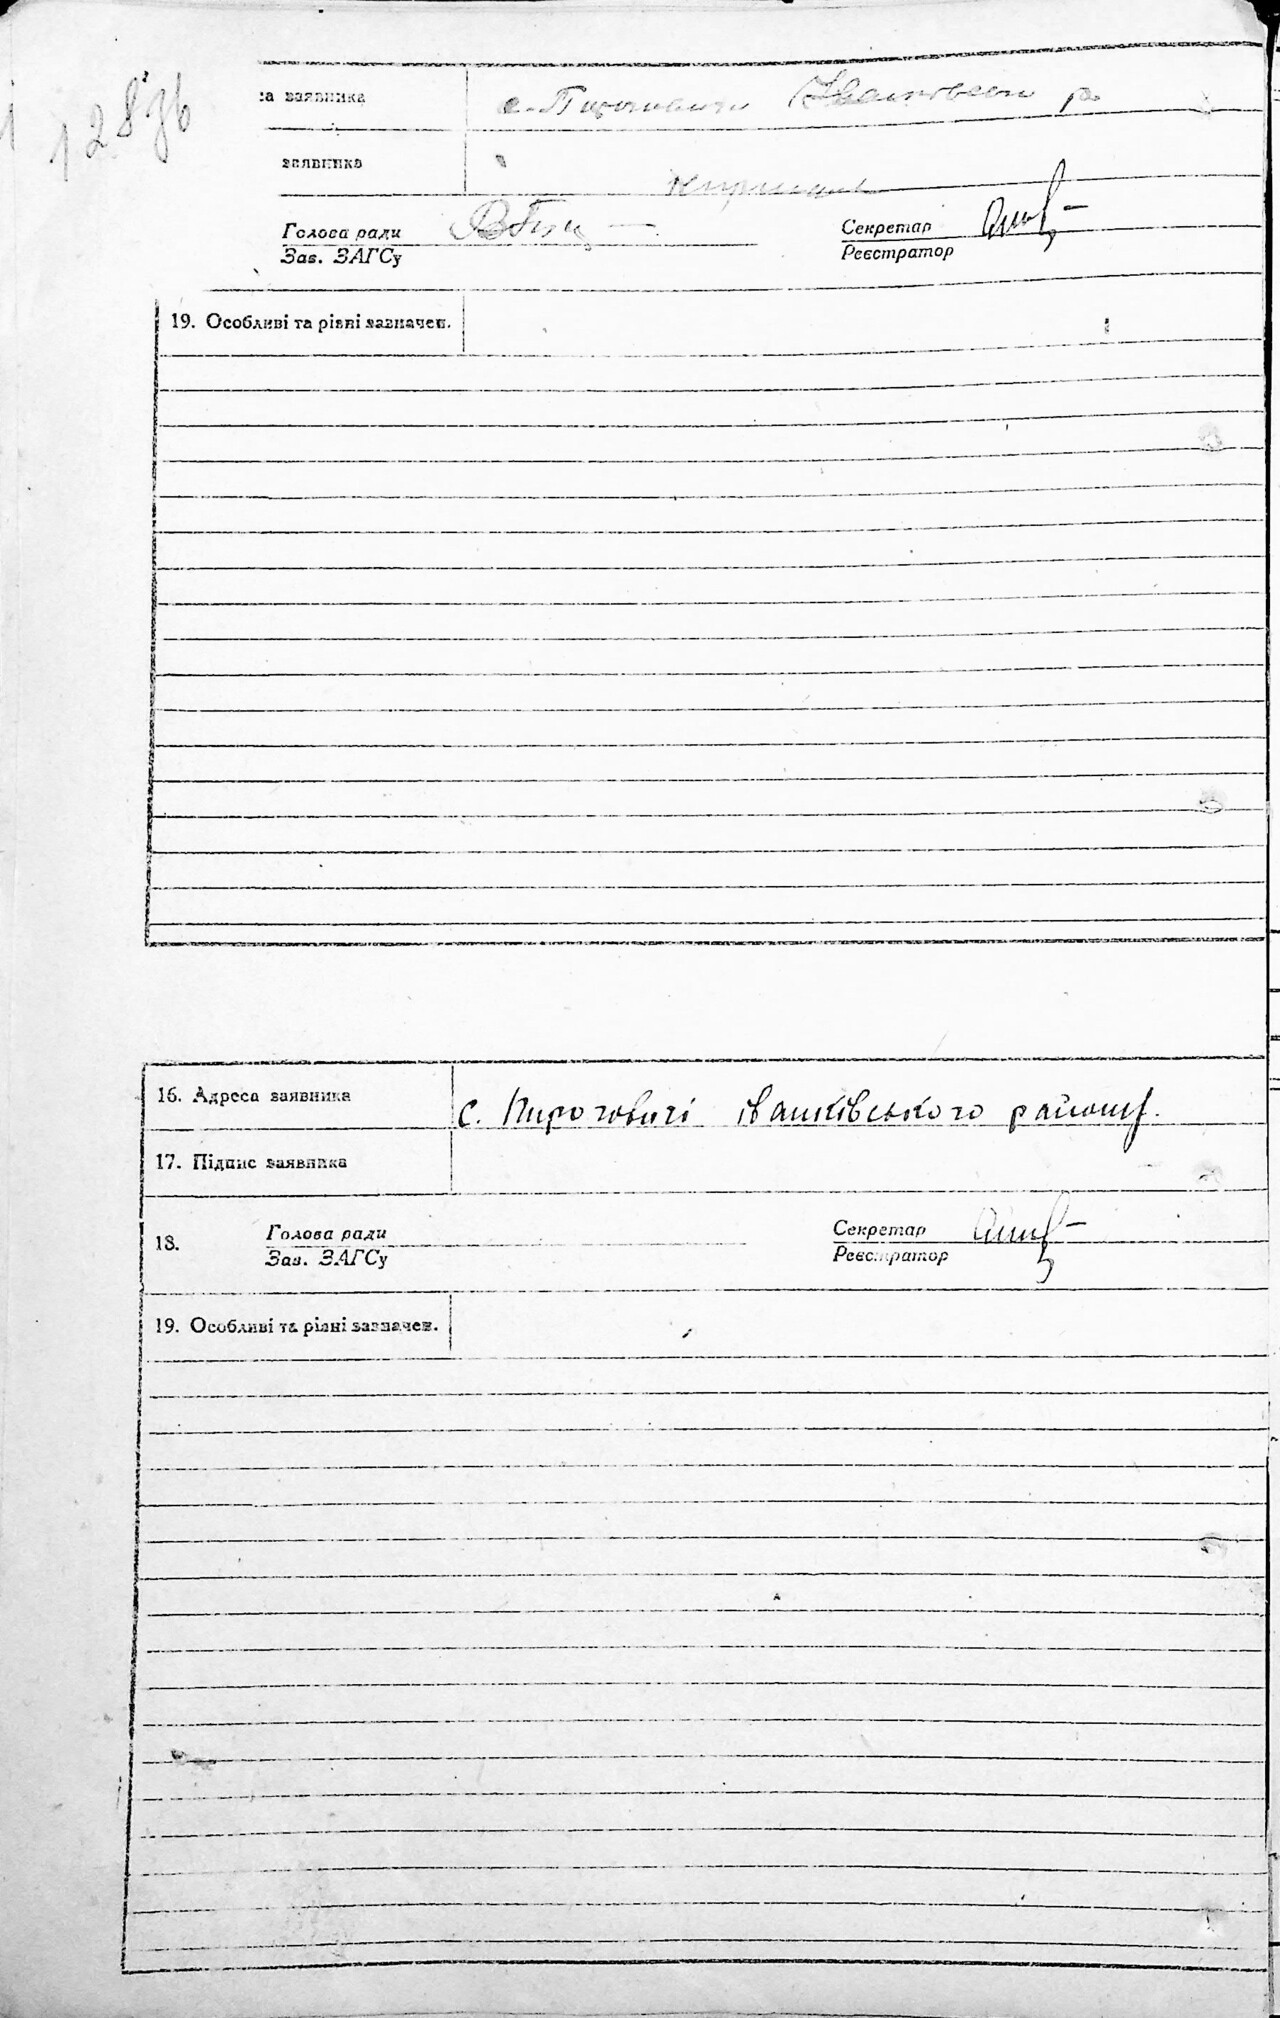 128зв
а заявника с. Пироговичи Иванковском р.
заявника
Голова ради
Зав. ЗАГСу
Секретар
Реєстратор
19. Особливі та різні зазначен.
16. Адреса заявника с. Пироговичі іванківського району.
17. Підпис заявника
18. Голова ради
Зав. ЗАГСу
Секретар
Реєстратор
19. Особливі та різні зазначен.